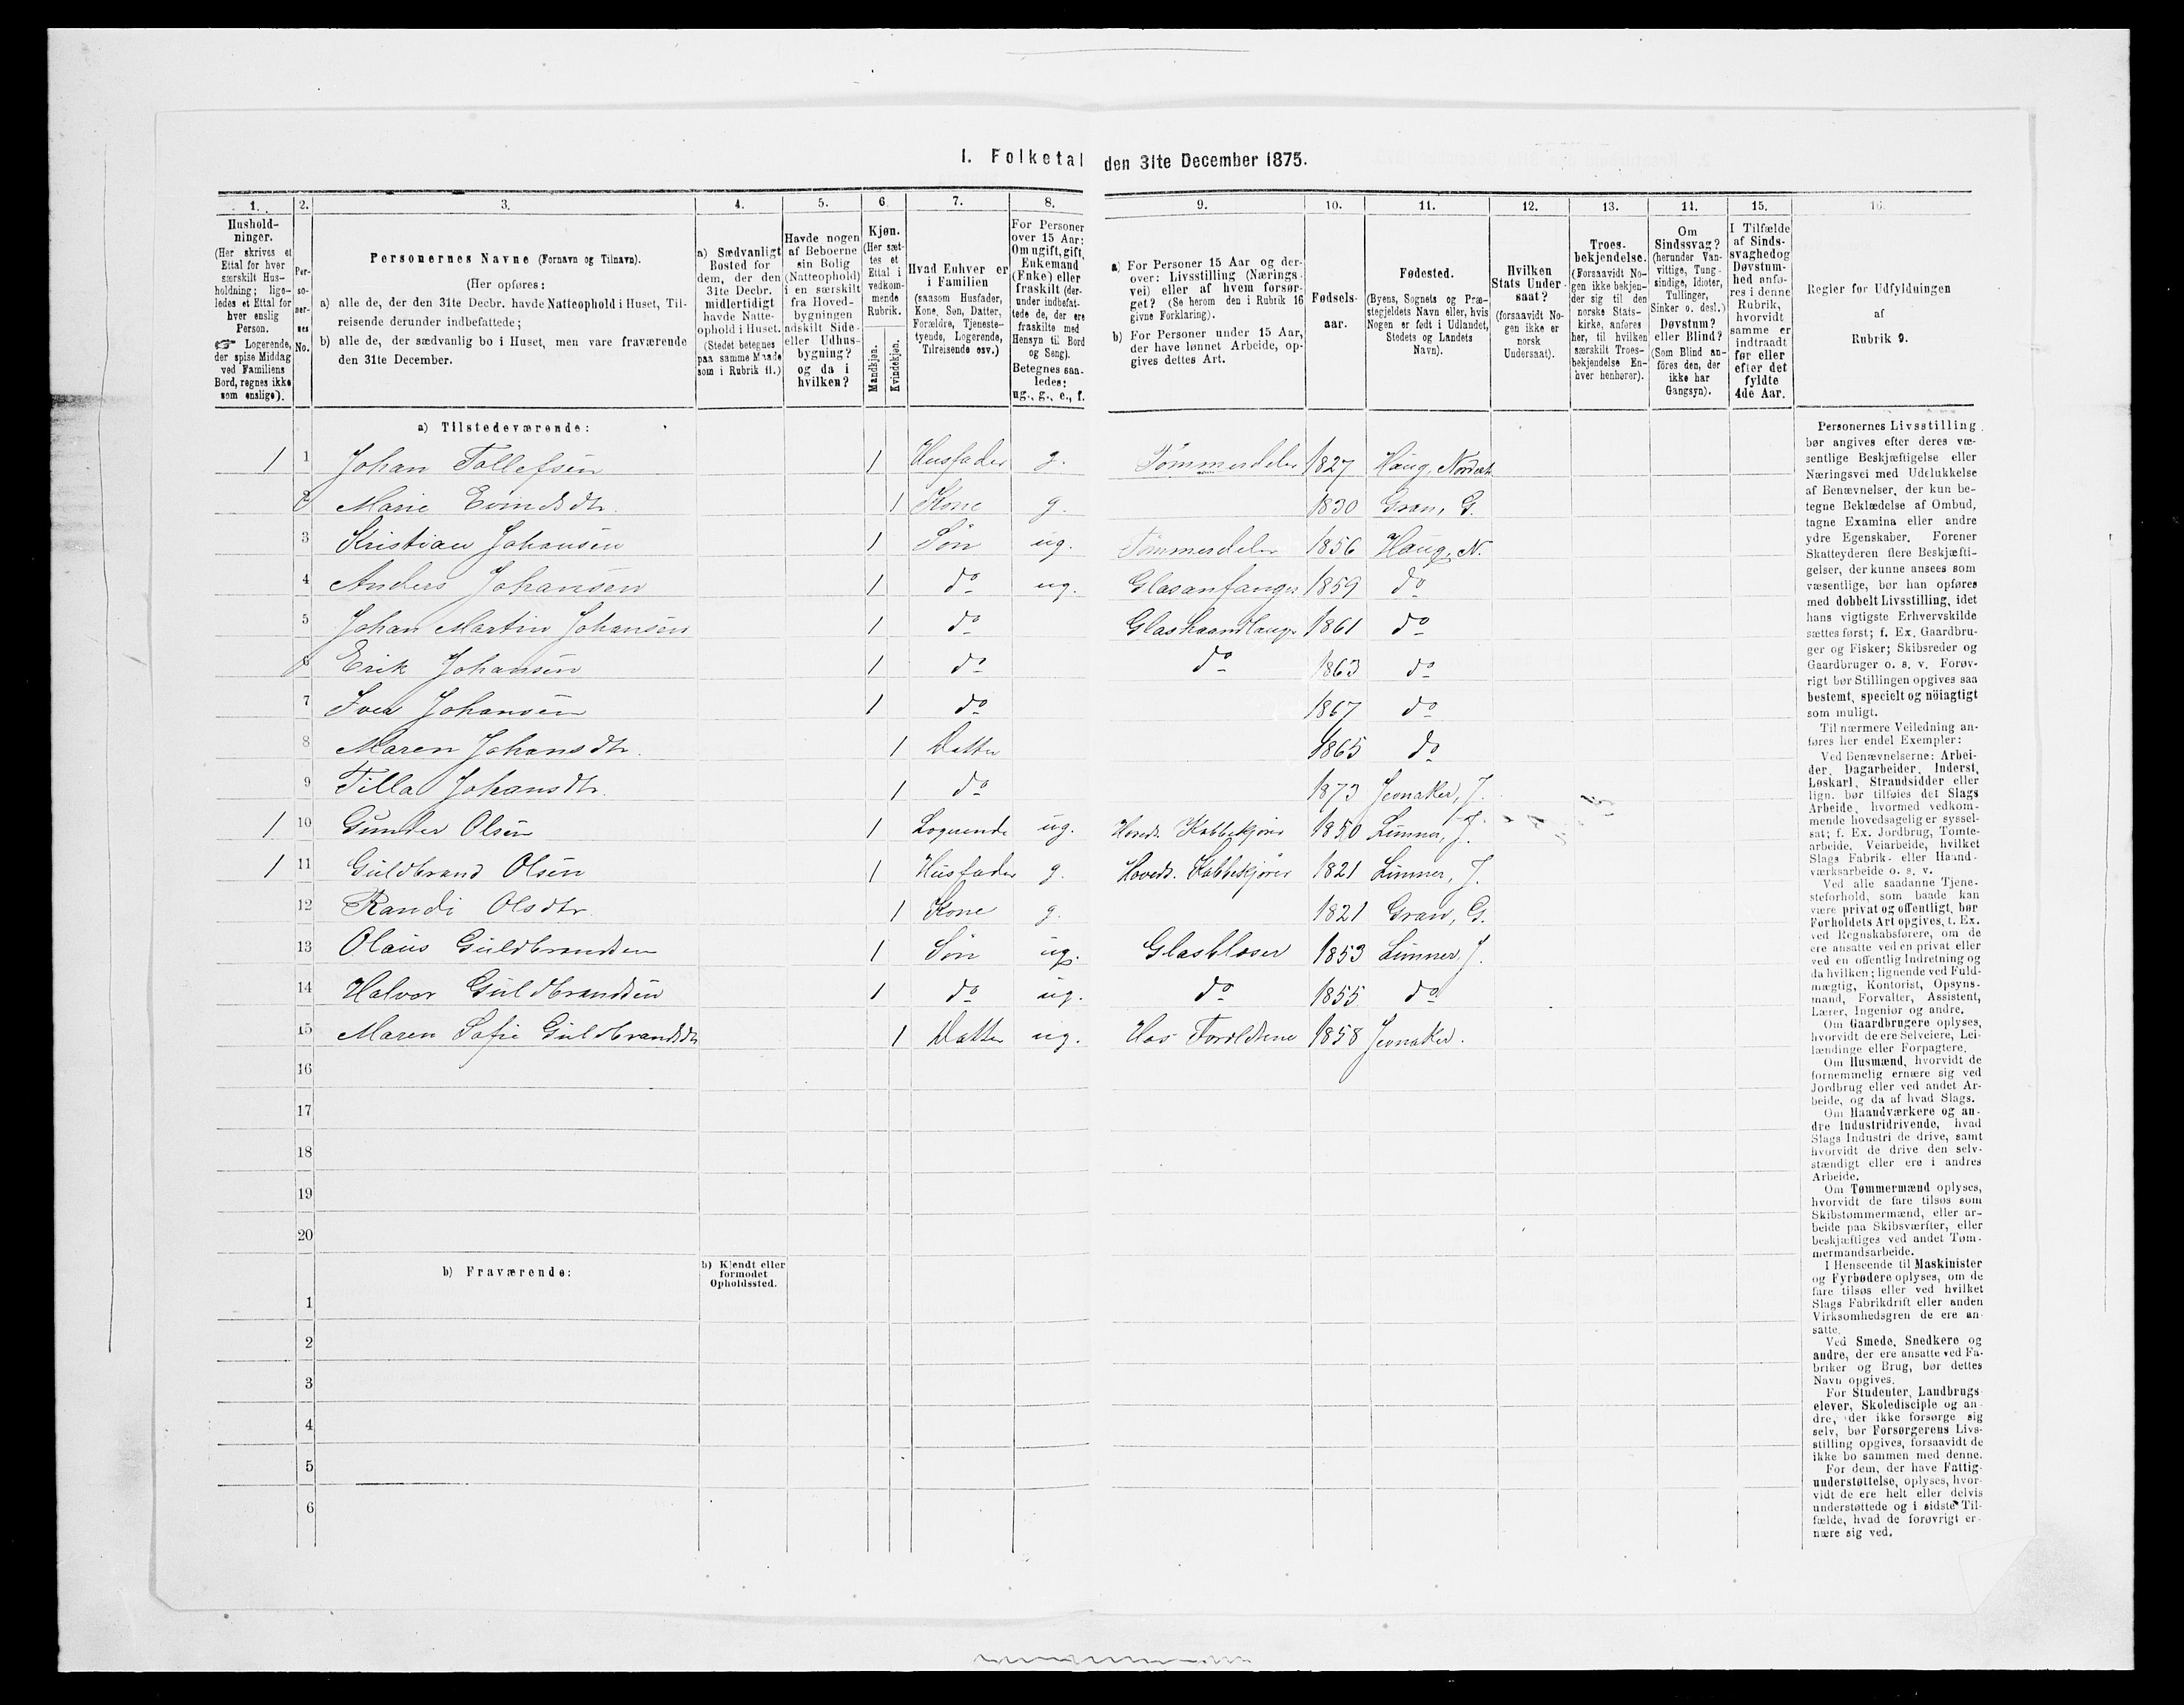 I. Folketal den 31te December 1875.
1. 2. 3. 4. 5. 6. 7. 8. 9. 10. 11. 12. 13. 14. 15. 16.
Hushold-
ninger.
(Her skrives et
Ettal for hver
særskilt Hus-
holdning; lige-
ledes et Ettal for
hver enslig
Person.
☞ Logerende,
der spise Middag
ved Familiens
Bord, regnes ikke
som enslige).
Per-
so-
ner-
nes
No.
Personernes Navne (Fornavn og Tilnavn).
(Her opføres:
a) alle de, der den 31te Decbr. havde Natteophold i Huset, Til-
reisende derunder indbefattede;
b) alle de, der sædvanlig bo i Huset, men vare fraværende
den 31te December.
a) Sædvanligt
Bosted for
dem, der den
31te Decbr.
midlertidigt
havde Natte-
ophold i Huset.
(Stedet betegnes
paa samme Maade
som i Rubrik 11.)
Havde nogen
af Beboerne
sin Bolig
(Natteophold)
i en særskilt
fra Hoved-
bygningen
adskilt Side-
eller Udhus-
bygning?
og da i
hvilken?
Kjøn.
(Her sæt-
tes et
Ettal i
vedkom-
mende
Rubrik.
Mandkjøn.
Kvindekjøn.
Hvad Enhver er
i Familien
(saasom Husfader,
Kone, Søn, Datter,
Forældre, Tjeneste-
tyende, Logerende,
Tilreisende osv.)
For Personer
over 15 Aar:
Om ugift, gift,
Enkemand
(Enke) eller
fraskilt (der-
under indbefat-
tede de, der ere
fraskilte med
Hensyn til Bord
og Seng).
Betegnes saa-
ledes:
ug., g., e., f.
a) For Personer 15 Aar og der-
over: Livsstilling (Nærings-
vei) eller af hvem forsør-
get? (Se herom den i Rubrik 16
givne Forklaring).
b) For Personer under 15 Aar,
der have lønnet Arbeide, op-
gives dettes Art.
Fødsels-
aar.
Fødested.
(Byens, Sognets og Præ-
stegjeldets Navn eller, hvis
Nogen er født i Udlandet,
Stedets og Landets
Navn).
Hvilken
Stats Under-
saat?
(forsaavidt No-
gen ikke er
norsk
Undersaat).
Troes-
bekjendelse.
(Forsaavidt No-
gen ikke bekjen-
der sig til den
norske Stats-
kirke, anføres
her, til hvilken
særskilt Troes-
bekjendelse En-
hver henhører).
Om
Sindssvag?
(herunder Van-
vittige, Tung-
sindige, Idioter,
Tullinger,
Sinker o. desl.)
Døvstum?
eller Blind?
(Som Blind an-
føres den, der
ikke har
Gangsyn).
I Tilfælde
af Sinds-
svaghed og
Døvstum-
hed anfø-
res i denne
Rubrik,
hvorvidt
samme er
indtraadt
før eller
efter det
fyldte
4de Aar.
Regler for Udfyldningen
af
Rubrik 9.
a) Tilstedeværende:
1 1 Johan Tollefsen 1 Husfader g. Tømmerdeler 1827 Haug,
2 Marie Evindsdtr. 1 Kone g. 1830 Gran, G.
3 Kristian Johansen 1 Søn ug. Tømmerdeler 1856 Haug, N.
4 Anders Johansen 1 do ug. Glasanfanger 1859 do
5 Johan Martin Johansen 1 do Glashaandlanger 1861 do
6 Erik Johansen 1 do do 1863 do
7 Iver Johansen 1 do 1867 do
8 Maren Johansdtr. 1 Datter 1865 do
9 Tilla Johansdtr. 1 do 1873 Jevnaker, J.
1 10 Gunder Olsen 1 Logerende ug. Hoveds. Kabbekjører 1850 Lunner, J.
1 11 Guldbrand Olsen 1 Husfader g. Hoveds. Kabbekjører 1821 Lunner, J.
12 Randi Olsdtr. 1 Kone g. 1821 Gran, G.
13 Olaus Guldbrandsen 1 Søn ug. Glasblæser 1853 Lunner, J.
14 Halvor Guldbrandsen 1 do ug. do 1855 do
15 Maren Sofie Guldbrandsdtr 1 Datter ug. Hos Forældrene 1858 Jevnaker.
16
17
18
19
20
b) Fraværende:
b) Kjendt eller
formodet
Opholdssted.
1
2
3
4
5
6
Personernes Livsstilling
bør angives efter deres væ-
sentlige Beskjæftigelse eller
Næringsvei med Udelukkelse
af Benævnelser, der kun be-
tegne Beklædelse af Ombud,
tagne Examina eller andre
ydre Egenskaber. Forener
Skatteyderen flere Beskjæfti-
gelser, der kunne ansees som
væsentlige, bør han opføres
med dobbelt Livsstilling, idet
hans vigtigste Erhvervskilde
sættes først; f. Ex. Gaardbru-
ger og Fisker; Skibsreder og
Gaardbruger o. s. v. Forøv-
rigt bør Stillingen opgives saa
bestemt, specielt og nöiagtigt
som muligt.
Til nærmere Veiledning an-
føres her endel Exempler:
Ved Benævnelserne: Arbei-
der, Dagarbeider, Inderst,
Løskarl, Strandsidder eller
lign. bør tilføies det Slags
Arbeide, hvormed vedkom-
mende hovedsagelig er syssel-
sat; f. Ex. Jordbrug, Tomte-
arbeide, Veiarbeide, hvilket
Slags Fabrik- eller Haand-
værksarbeide o. s. v.
Ved alle saadanne Tjene-
steforhold, som baade kan
være privat og offentligt, bør
Forholdets Art opgives, t. Ex.
ved Regnskabsførere, om de
ere ansatte ved en privat eller
ved en offentlig Indretning og
da hvilken; lignende ved Fuld-
mægtig, Kontorist, Opsyns-
mand, Forvalter, Assistent,
Lærer, Ingeniør og andre.
Om Gaardbrugere oplyses,
hvorvidt de ere Selveiere, Lei-
lændinge eller Forpagtere.
Om Husmænd, hvorvidt de
fornemmelig ernære sig ved
Jordbrug eller ved andet Ar-
beide, og da af hvad Slags.
Om Haandværkere og an-
dre Industridrivende, hvad
Slags Industri de drive, samt
hvorvidt de drive den selv-
stændigt eller ere i andres
Arbeide.
Om Tømmermænd oplyses,
hvorvidt de fare tilsøs som
Skibstømmermænd, eller ar-
beide paa Skibsværfter, eller
beskjæftiges ved andet Tøm-
mermandsarbeide.
I Henseende til Maskinister
og Fyrbødere oplyses, om de
fare tilsøs eller ved hvilket
Slags Fabrikdrift eller anden
Virksomhedsgren de ere an-
satte.
Ved Smede, Snedkere og
andre, der ere ansatte ved Fa-
briker og Brug, bør dettes
Navn opgives.
For Studenter, Landbrugs-
elever, Skoledisciple og an-
dre, der ikke forsørge sig
selv, bør Forsørgerens Livs-
stilling opgives, forsaavidt de
ikke bo sammen med denne.
For dem, der have Fattig-
understøttelse, oplyses, hvor-
vidt de ere helt eller delvis
understøttede og i sidste Til-
fælde, hvad de forøvrigt er-
nære sig ved.